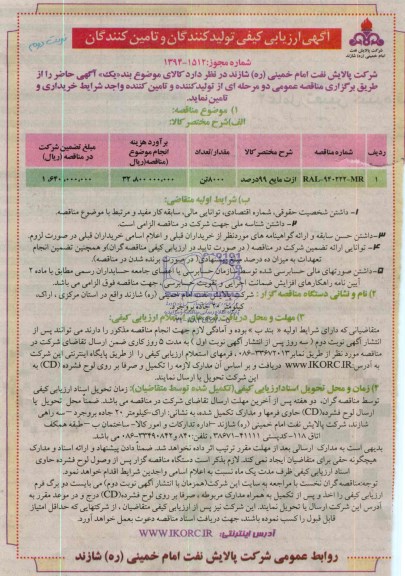 نوبت دوم
آگهی ارزیابی کیفی تولیدکنندگان و تامین کنندگان
شرکت پالایش نفت امام خمینی (ره) شازند
شماره مجوز: ۱۵۱۲-۱۳۹۴
شرکت پالایش نفت امام خمینی (ره) شازند در نظر دارد کالای موضوع بند«یک» آگهی حاضر را از
طریق برگزاری مناقصه عمومی دو مرحله ای از تولیدکننده و تامین کننده واجد شرایط خریداری و
تامین نماید.
۱) موضوع مناقصه:
الف)شرح مختصر کالا:
ردیف شماره مناقصه شرح مختصر کالا مقدار/تعداد برآورد هزینه انجام موضوع مناقصه(ریال) مبلغ تضمین شرکت در مناقصه (ریال)
۱ RAL-۹۲۰۲۲۲-MR ازت مایع ۹۹درصد ۸۰۰۰تن ۳۲,۸۰۰,۰۰۰,۰۰۰ ۱,۶۴۰,۰۰۰,۰۰۰
ب) شرایط اولیه متقاضی:
۱- داشتن شخصیت حقوقی، شماره اقتصادی، توانایی مالی، سابقه کار مفید و مرتبط با موضوع مناقصه.
۲- داشتن شناسه ملی جهت شرکت در مناقصه الزامی است.
۳-داشتن حسن سابقه و ارائه گواهینامه های موردنظر از خریداران قبلی و اعلام اسامی خریداران قبلی در صورت لزوم.
۴- توانایی ارائه تضمین شرکت در مناقصه ( در صورت تایید در ارزیابی کیفی مناقصه گران)و همچنین تضمین انجام
تعهدات به میزان ده درصد مبلغ پیشنهادی( در صورت برنده شدن در مناقصه).
۵- داشتن صورتهای مالی حسابرسی شده توسط سازمان حسابرسی یا اعضای جامعه حسابداران رسمی مطابق با ماده ۲
آیین نامه راهکارهای افزایش ضمانت اجرایی و تقویت حسابرسی، جهت مناقصه فوق الزامی می باشد.
۲) نام و نشانی دستگاه مناقصه گزار: شرکت پالایش نفت امام خمینی (ره) شازند واقع در استان مرکزی ، اراک،
کیلومتر ۲۰ جاده بروجرد
۳) مهلت و محل دریافت فرم های استعلام ارزیابی کیفی:
متقاضیانی که دارای شرایط اولیه « بند ب » بوده و آمادگی لازم جهت انجام مناقصه مذکور را دارند می توانند پس از
انتشار آگهی نوبت دوم ( سه روز پس از انتشار آگهی نوبت اول ) به مدت ۵ روز کاری ضمن ارسال تقاضای شرکت در
مناقصه مورد نظر از طریق نمابر ، فرمهای استعلام ارزیابی کیفی را از طریق پایگاه اینترنتی این شرکت
به آدرس: WWW.IKORC.IR دریافت و بر اساس آن مدارک لازمه را تکمیل و صرفا بر روی لوح فشرده (CD) به
این شرکت تحویل یا ارسال نمایند.
۲) زمان و محل تحویل اسناد ارزیابی کیفی (تکمیل شده توسط متقاضیان): زمان تحویل اسناد ارزیابی کیفی
توسط مناقصه گران، دو هفته پس از آخرین مهلت ارسال تقاضای شرکت در مناقصه می باشد. ضمناً محل تحویل یا
ارسال لوح فشرده(CD) حاوی فرمها و مدارک تکمیل شده، به نشانی: اراک-کیلومتر ۲۰ جاده بروجرد - سه راهی
شازند، شرکت پالایش نفت امام خمینی (ره) شازند -اداره تدارکات و امور کالا- ساختمان ب - طبقه همکف
اتاق ۱۱۸ می باشد.
بدیهی است به مدارک ارسالی بعد از مهلت مقرر ترتیب اثر داده نخواهد شد. ضمناً دادن پیشنهاد و ارائه اسناد و مدارک
هیچگونه حقی برای متقاضیان ایجاد نمی کند. لازم بذکر است دستگاه مناقصه گزار پس از وصول لوح فشرده حاوی
اسناد ارزیابی کیفی ظرف مدت یک ماه نسبت به اعلام اسامی واجدین شرایط اقدام خواهد نمود.
توجه:مناقصه گران نخست با مراجعه به سایت این شرکت(همزمان با انتشار آگهی نوبت دوم) می بایست دو برگ فرم
ارزیابی کیفی را اخذ و پس از تکمیل به همراه مدارک مربوطه ، صرفا بر روی لوح فشرده(CD) درج و در موعد مقرر به
آدرس این شرکت ارسال یا تحویل نمایند. این شرکت نیز پس از ارزیابی کیفی متقاضیان ، از شرکتهایی که حداقل امتیاز
قابل قبول را کسب نموده باشند، جهت دریافت اسناد مناقصه دعوت بعمل خواهد آورد.
آدرس اینترنتی: WWW.IKORC.IR
روابط عمومی شرکت پالایش نفت امام خمینی (ره) شازند